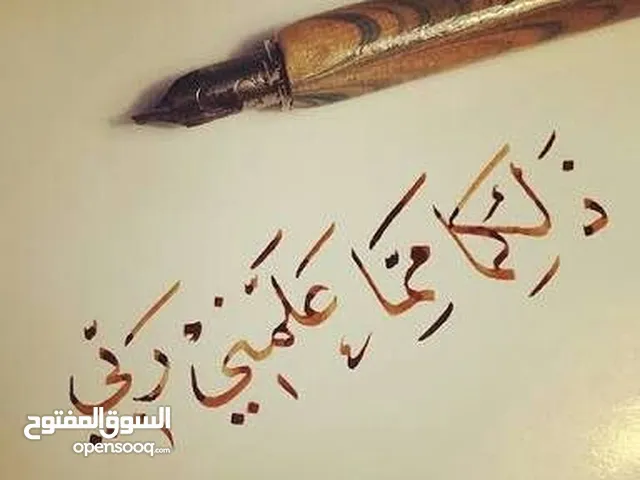 ذَلِكُمَا مِمَّا عَلَّمَنِيْ رَبِّي
السوق المفتوح
opensooq.com